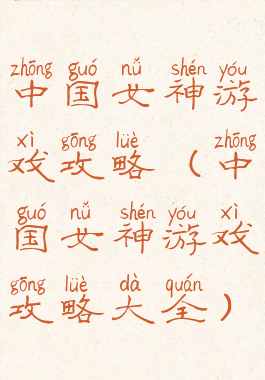 zhōng guó nǚ shén yóu
中国女神游
xì gōng lüè zhōng
戏攻略（中
guó nǚ shén yóu xì
国女神游戏
gōng lüè dà quán
攻略大全）